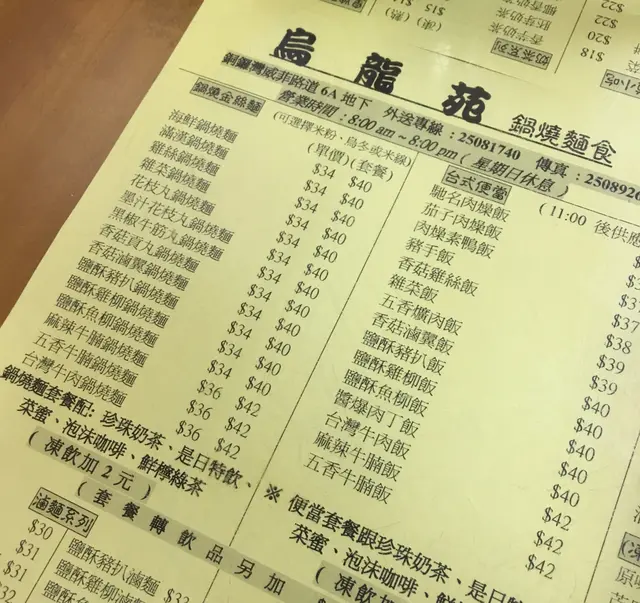 $15 (熱)
(凍)
香芋奶茶
胚芽奶茶
椰香奶茶
奶茶系列
$18
$20
$22
$22
小吃
烏龍苑 鍋燒麵食
銅鑼灣威菲路道 6A 地下 外送專線：25081740 傳真：2508926
營業時間：8:00 am ~ 8:00 pm ( 星期日休息 )
鍋燒金絲麵
(可選擇米粉、烏冬或米線)
(單價) (套餐)
海鮮鍋燒麵 $34 $40
滿漢鍋燒麵 $34 $40
雞絲鍋燒麵 $34 $40
雜菜鍋燒麵 $34 $40
花枝丸鍋燒麵 $34 $40
墨汁花枝丸鍋燒麵 $34 $40
黑椒牛筋丸鍋燒麵 $34 $40
香菇貢丸鍋燒麵 $34 $40
香菇滷翼鍋燒麵 $34 $40
鹽酥豬扒鍋燒麵 $34 $40
鹽酥雞柳鍋燒麵 $34 $40
鹽酥魚柳鍋燒麵 $34 $40
麻辣牛腩鍋燒麵 $36 $42
五香牛腩鍋燒麵 $36 $42
台灣牛肉鍋燒麵 $36 $42
鍋燒麵套餐配: 珍珠奶茶、是日特飲、
菜蜜、泡沫咖啡、鮮檸綠茶
( 凍飲加 2 元 )
( 套餐轉飲品另加
台式便當
( 11:00 後供應
馳名肉燥飯
茄子肉燥飯
肉燥素鴨飯 $37
豬手飯 $37
香菇雞絲飯 $38
雜菜飯 $39
五香爌肉飯 $39
香菇滷翼飯 $40
鹽酥豬扒飯 $40
鹽酥雞柳飯 $40
鹽酥魚柳飯 $40
醬爆肉丁飯 $40
台灣牛肉飯 $42
麻辣牛腩飯 $42
五香牛腩飯 $42
※ 便當套餐跟珍珠奶茶、是日特
菜蜜、泡沫咖啡、鮮
( 凍飲加
滷麵系列
$30
$31
$31
$32
鹽酥豬扒滷麵
鹽酥雞柳滷
鹽酥魚